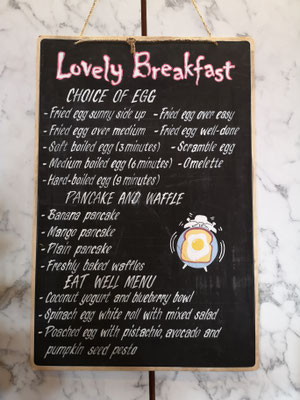 Lovely Breakfast
CHOICE OF EGG
- Fried egg sunny side up - Fried egg over easy
- Fried egg over medium - Fried egg well-done
- Soft boiled egg (3 minutes) - Scramble egg
- Medium boiled egg (6 minutes) - Omelette
- Hard-boiled egg (9 minutes)
PANCAKE AND WAFFLE
- Banana pancake
- Mango pancake
- Plain pancake
- Freshly baked waffles
EAT WELL MENU
- Coconut yogurt and blueberry bowl
- Spinach egg white roll with mixed salad
- Poached egg with pistachio, avocado and
pumpkin seed pesto